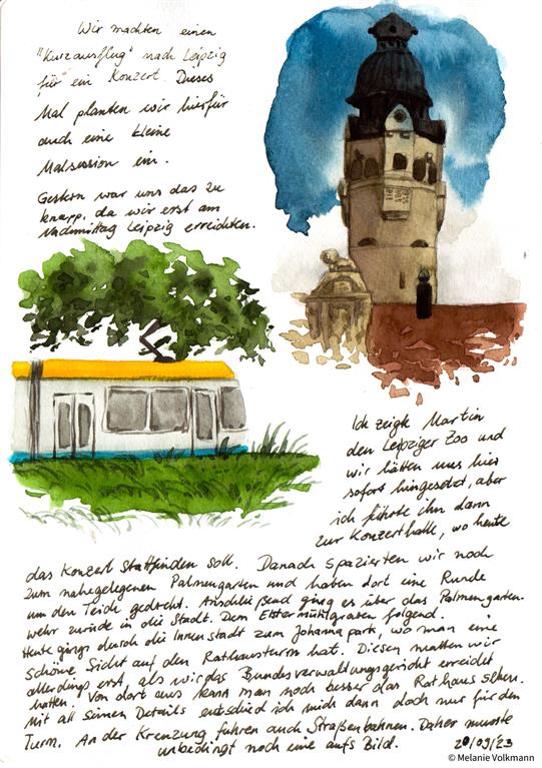 Wir machten einen
"Kurzausflug" nach Leipzig
für ein Konzert. Dieses
Mal planten wir hierfür
auch eine kleine
Malsession ein.
Gestern war uns das zu
knapp, da wir erst am
Nachmittag Leipzig erreichten.
Ich zeigte Martin
den Leipziger Zoo und
wir hätten uns hier
sofort hingesetzt, aber
ich führte ihn dann
zur Konzerthalle, wo heute
das Konzert stattfinden soll. Danach spazierten wir noch
zum nahegelegenen Palmengarten und haben dort eine Runde
um den Teich gedreht. Anschließend ging es über das Palmengarten-
wehr zurück in die Stadt. Dem Elstermühlgraben folgend.
Heute gings durch die Innenstadt zum Johannapark, wo man eine
schöne Sicht auf den Rathausturm hat. Diesen malten wir
allerdings erst, als wir das Bundesverwaltungsgericht erreicht
hatten. Von dort aus kann man noch besser das Rathaus sehen.
Mit all seinen Details entschied ich mich dann doch nur für den
Turm. An der Kreuzung fuhren auch Straßenbahnen. Daher musste
unbedingt noch eine aufs Bild.
20/09/23
© Melanie Volkmann